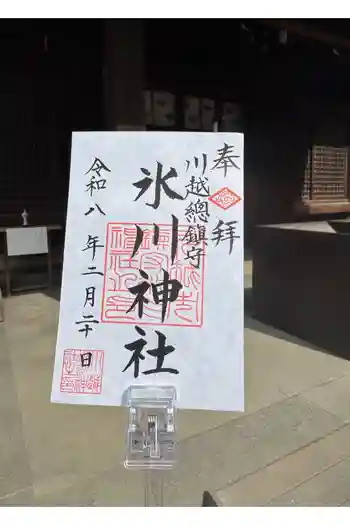 奉拝
川越總鎮守
氷川神社
令和八年二月二十日